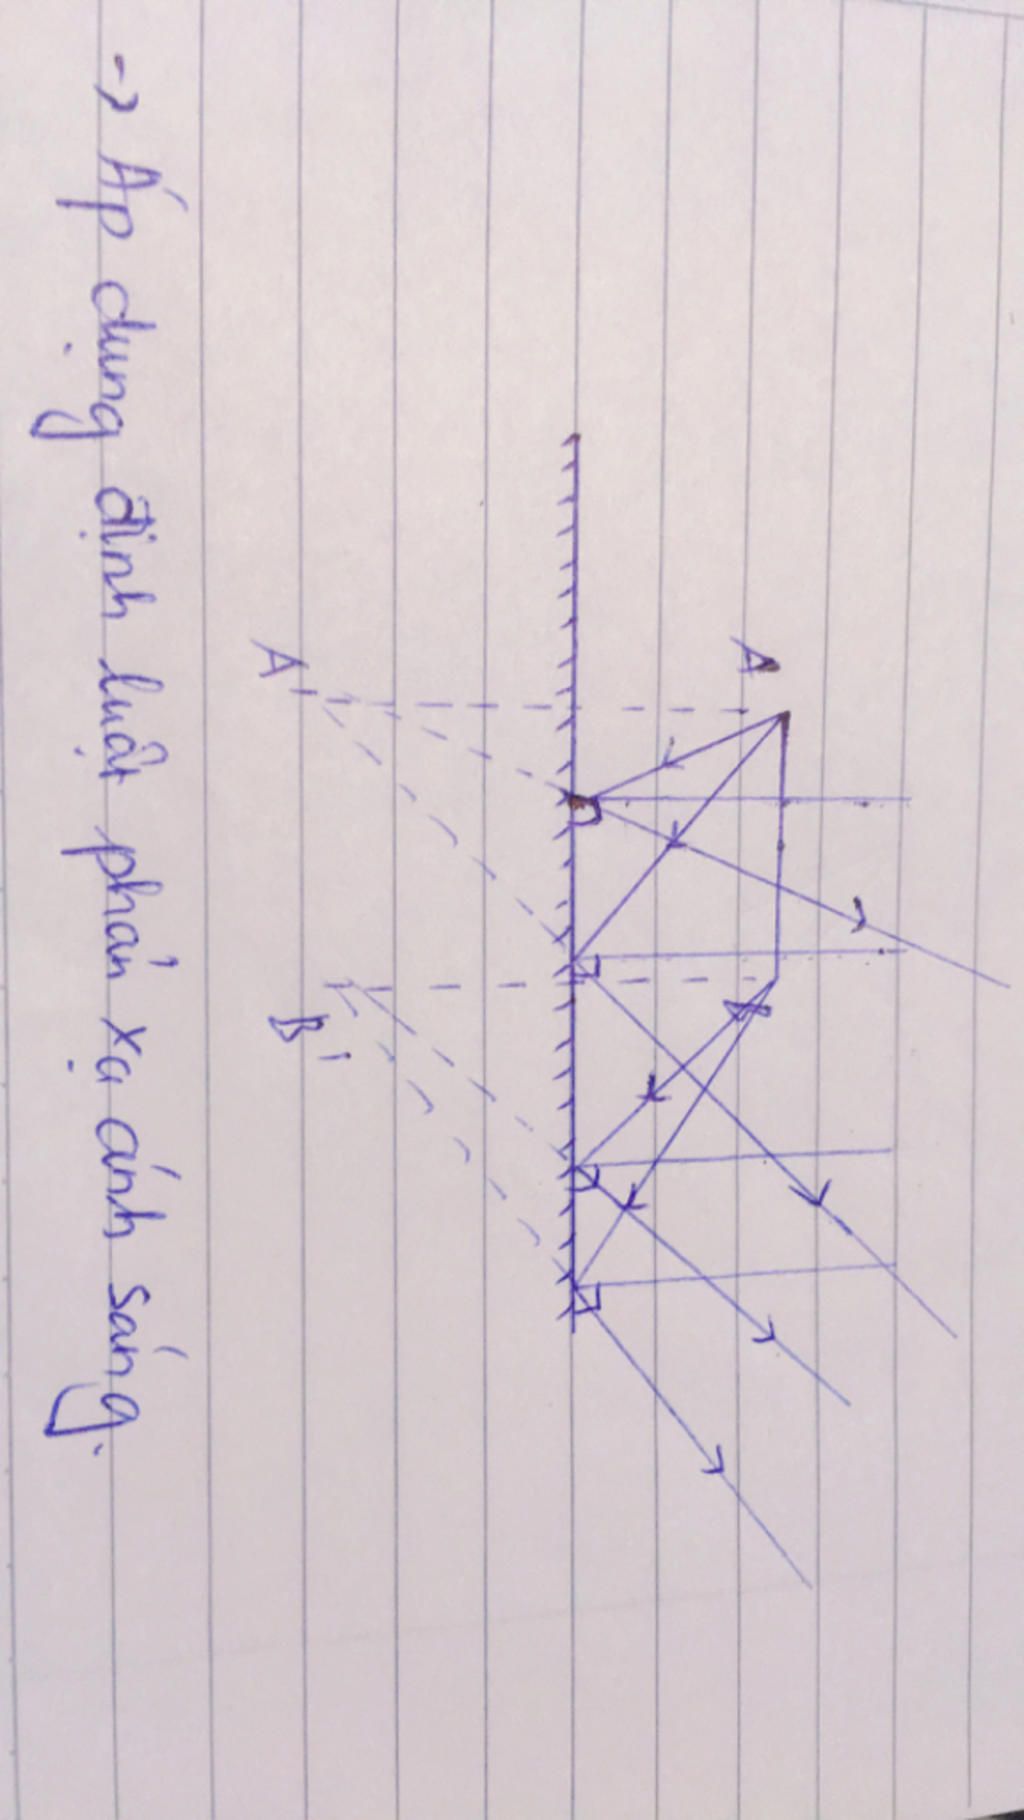 A
A'
B'
-> Áp dụng định luật phản xạ ánh sáng.